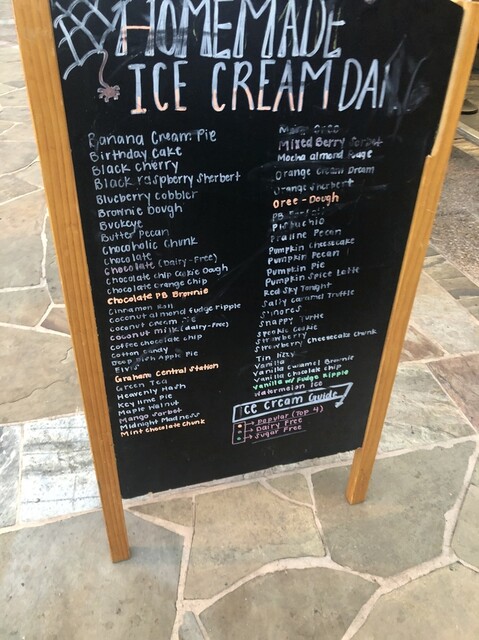 HOMEMADE
ICE CREAM
Banana Cream Pie
Birthday Cake
Black Cherry
Black raspberry Sherbert
Blueberry Cobbler
Brownie Dough
Buckeye
Butter Pecan
Chocoholic Chunk
Chocolate
Chocolate (Dairy-Free)
Chocolate Chip Cookie Dough
Chocolate Orange Chip
Chocolate PB Brownie
Cinnamon Roll
Coconut almond fudge ripple
Coconut Cream Pie
Coconut milk (dairy-free)
Coffee Chocolate Chip
Cotton Candy
Deep Dish Apple Pie
Elvis
Graham Central Station
Green Tea
Heavenly Hash
Key lime Pie
Maple Walnut
Mango Sorbet
Midnight Madness
Mint Chocolate Chunk
Oreo
Mixed Berry Sorbet
Mocha almond Fudge
Orange Cream Dream
Orange Sherbert
Oreo - Dough
PB
Pistachio
Praline Pecan
Pumpkin Cheesecake
Pumpkin Pecan
Pumpkin Pie
Pumpkin Spice Latte
Red Sky Tonight
Salty Caramel Truffle
S'mores
Snappy Turtle
Spookie Cookie
Strawberry
Strawberry Cheesecake Chunk
Tin lizzy
Vanilla
Vanilla Caramel Brownie
Vanilla Chocolate chip
Vanilla w/ Fudge Ripple
Watermelon Ice
Ice Cream Guide
→ Popular (Top 4)
→ Dairy Free
→ Sugar Free